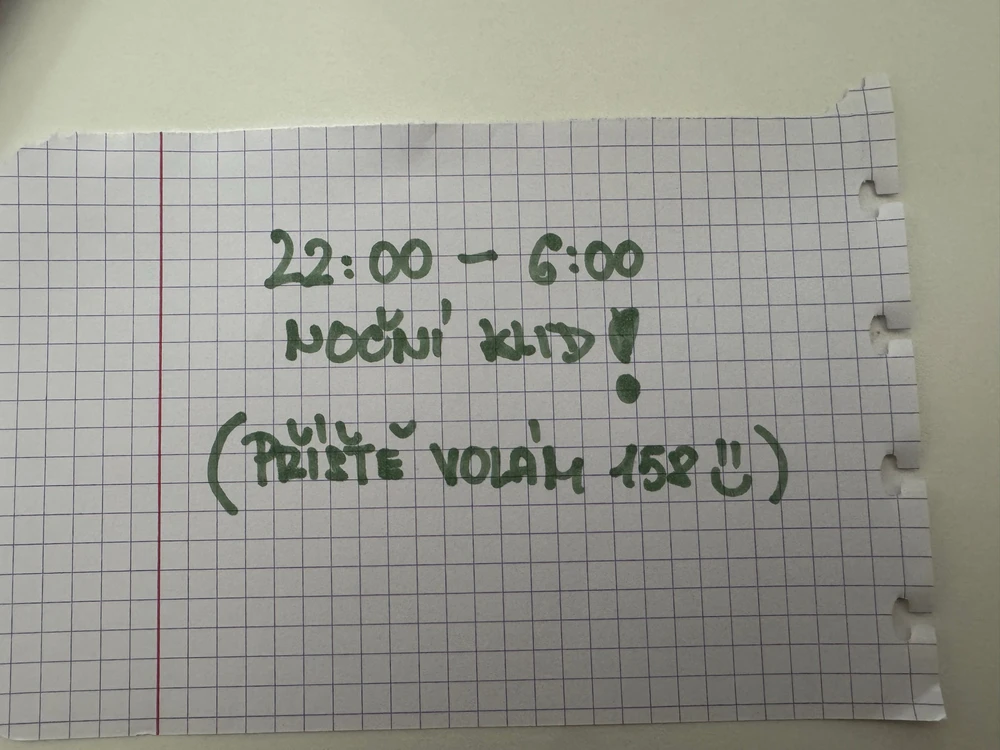 22:00 – 6:00
NOČNÍ KLID!
(PŘÍŠTĚ VOLÁM 158 :))